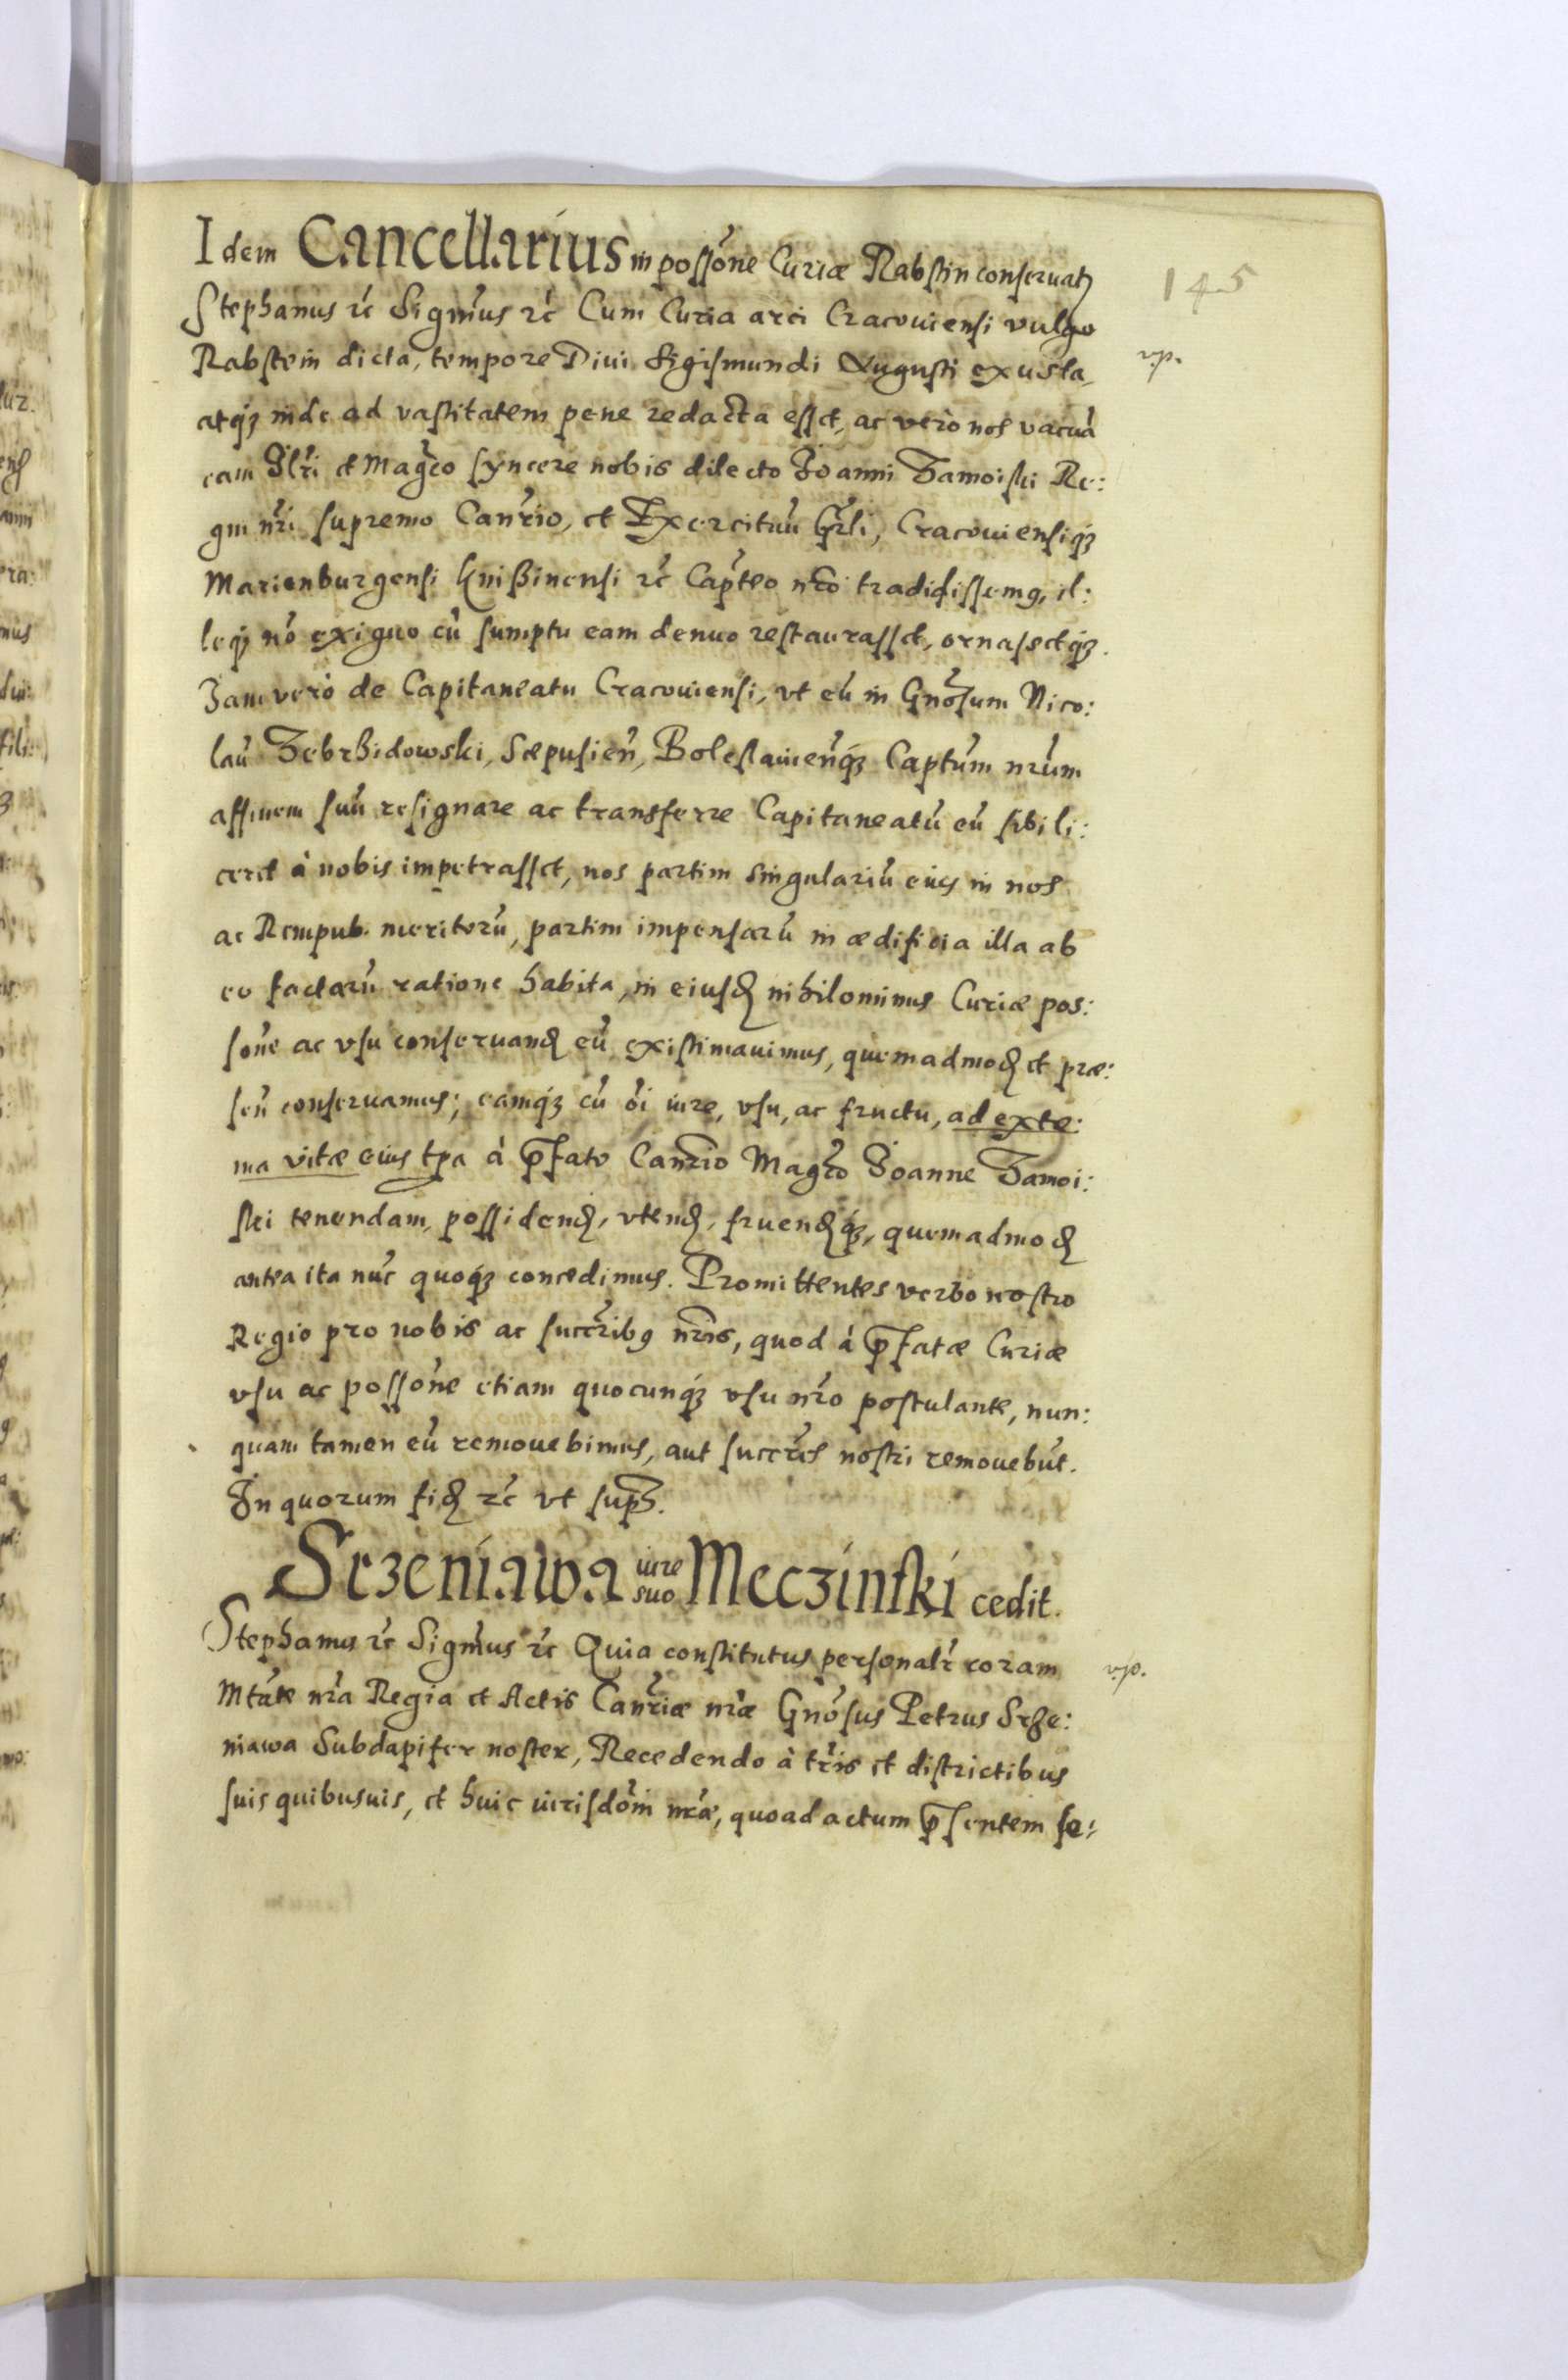 Idem Cancellarius in possone Curiæ Rabstin conseruatꝫ
145
Stephanus rc Sigmus rc Cum Curia arci Cracouiensi vulgo
Rabstein dicta, tempore Diui Sigismundi Augusti exusta,
v.p.
atqꝫ inde ad vastitatem pene redacta esset, ac vero nos vacuā
eam Illri et Magco syncere nobis dilecto Joanni Zamoiski Re:
gni nri supremo Canrio, et Exercituū Gnrli, Cracouiensiqꝫ
Marienburgensi Knißinensi rc Capteo nro tradidissemꝰ, il:
leqꝫ nō exiguo cū sumptu eam denuo restaurasset, ornasetqꝫ.
Jam vero de Capitaneatu Cracouiensi, vt eū in Gnosum Nico:
laū Zebrzidowski, Sæpusien, Boleslauienqꝫ Captum nrum
affinem suū resignare ac transferre Capitaneatū eū sibi li:
ceret à nobis impetrasset, nos partim singulariū eius in nos
ac Rempub. meritorū, partim impensarū in ædificia illa ab
eo factarū ratione habita, in eiusd nihilominus Curiæ pos:
sone ac vsu conseruand eū existimauimus, quemadmod et præ:
sen conseruamus; eamqꝫ cū oi iure, vsu, ac fructu, ad extre:
ma vitæ eius tpa à pfato Canrio Magco Joanne Zamoi:
ski tenendam, possidend, vtend, fruendqꝫ, quemadmod
antea ita nūc quoqꝫ concedimus. Promittentes verbo nostro
Regio pro nobis ac succribꝰ nris, quod à pfatæ Curiæ
vsu ac possone etiam quocunqꝫ vsu nro postulante, nun:
quam tamen eū remouebimus, aut succres nostri remouebūt.
In quorum fid rc vt supꝫ.
Srzeniawa iure suo Meczinski cedit.
Stephanus rc Sigmus rc Quia constitutus personalr coram
v.p.
Mtāte nra Regia et Actis Canriæ nræ Gnosus Petrus Srze:
niawa Subdapifer noster, Recedendo à tris et districtibus
suis quibusuis, et huic iurisdoni nræ, quoad actum psentem se: